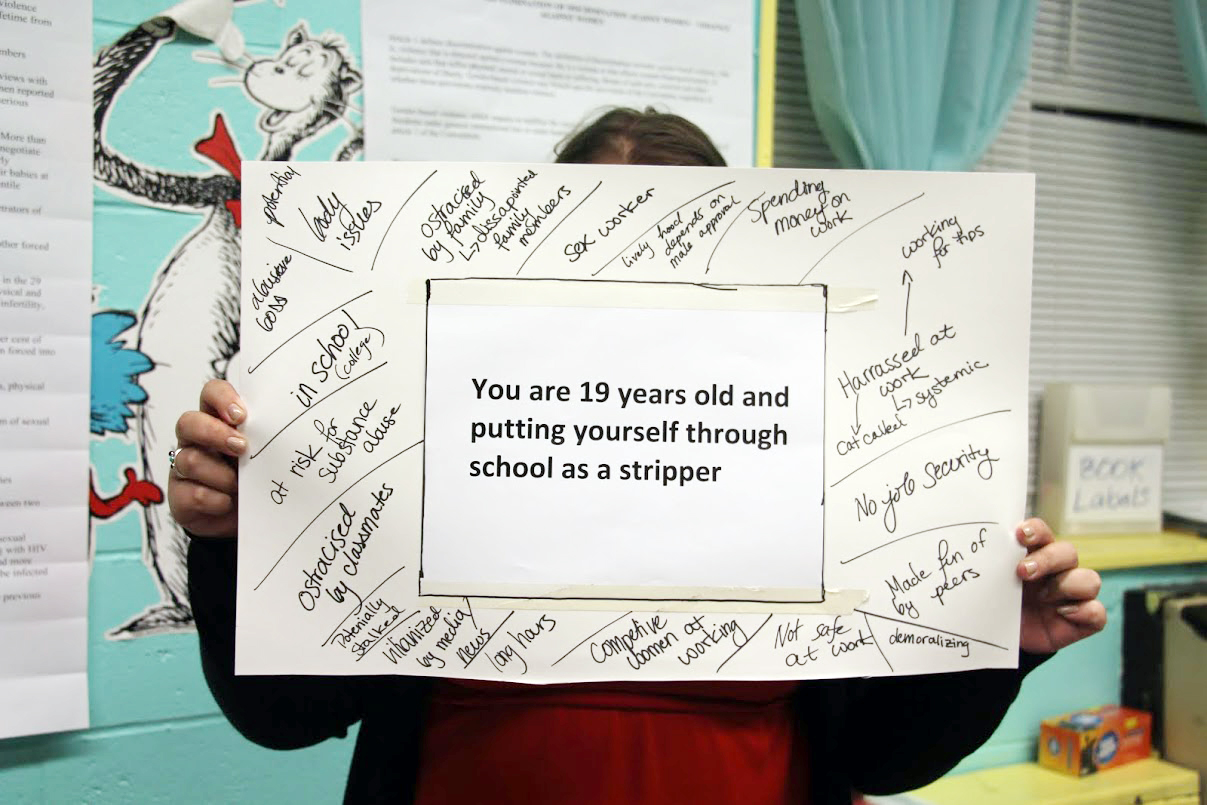 You are 19 years old and
putting yourself through
school as a stripper
potential
lady
issues
ostracized
by family
↳ dissapointed
family
members
sex worker
lively hood
depends on
male approval
Spending
money on
work
working
for tips
Harrassed at
work
↳ systemic
cat called
No job security
Made fun of
by peers
demoralizing
Not safe
at work
competive
women at
working
long hours
villanized
by media/
news
Potenially
stalked
Ostracised
by classmates
at risk for
substance
abuse
in school
(college)
abusive
boss
BOOK
Labels
AGAINST WOMEN
violence
fetime from
mbers
views with
en reported
serious
More than
negotiate
ly
ir babies at
entile
trators of
other forced
in the 29
ysical and
infertility,
er cent of
n forced into
s, physical
m of sexual
ween two
sexual
g with HIV
nd more
be infected
previous